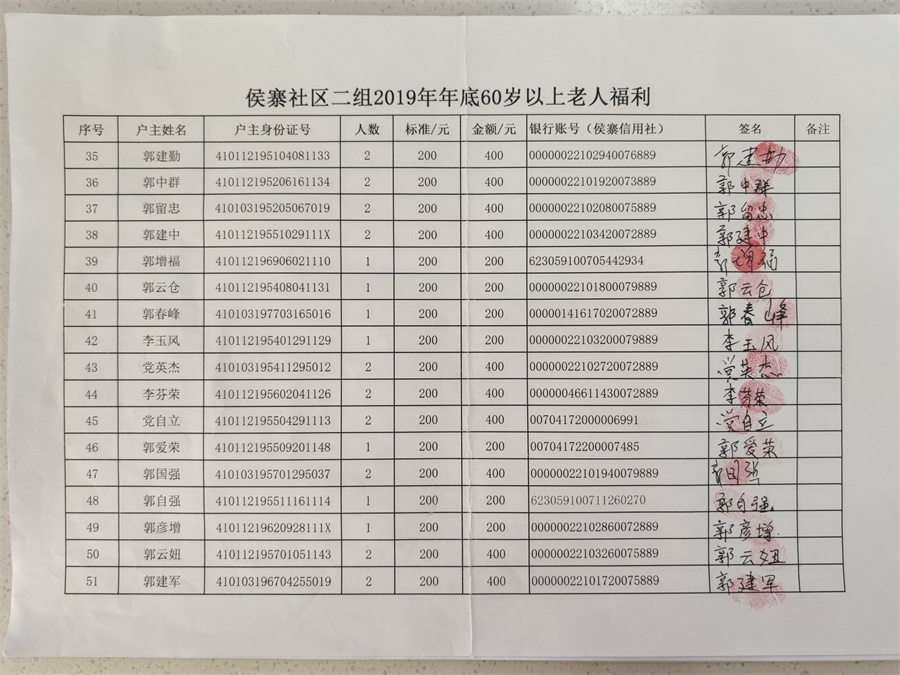 侯寨社区二组2019年年底60岁以上老人福利
序号 户主姓名 户主身份证号 人数 标准/元 金额/元 银行账号（侯寨信用社） 签名 备注
35 郭建勤 410112195104081133 2 200 400 00000022102940076889 郭建勤
36 郭中群 410112195206161134 2 200 400 00000022101920073889 郭中群
37 郭留忠 410103195205067019 2 200 400 00000022102080075889 郭留忠
38 郭建中 41011219551029111X 2 200 400 00000022103420072889 郭建中
39 郭增福 410112196906021110 1 200 200 623059100705442934 郭增福
40 郭云仓 410112195408041131 1 200 200 00000022101800079889 郭云仓
41 郭春峰 410103197703165016 1 200 200 00000141617020072889 郭春峰
42 李玉风 410112195401291129 1 200 200 00000022103200079889 李玉风
43 党英杰 410103195411295012 2 200 400 00000022102720072889 党英杰
44 李芬荣 410112195602041126 2 200 400 00000046611430072889 李芬荣
45 党自立 410112195504291113 2 200 400 00704172000006991 党自立
46 郭爱荣 410112195509201148 1 200 200 00704172200007485 郭爱荣
47 郭国强 410103195701295037 2 200 400 00000022101940079889 郭国强
48 郭自强 410112195511161114 1 200 200 623059100711260270 郭自强
49 郭彦增 41011219620928111X 1 200 200 00000022102860072889 郭彦增
50 郭云妞 410112195701051143 2 200 400 00000022103260075889 郭云妞
51 郭建军 410103196704255019 2 200 400 00000022101720075889 郭建军